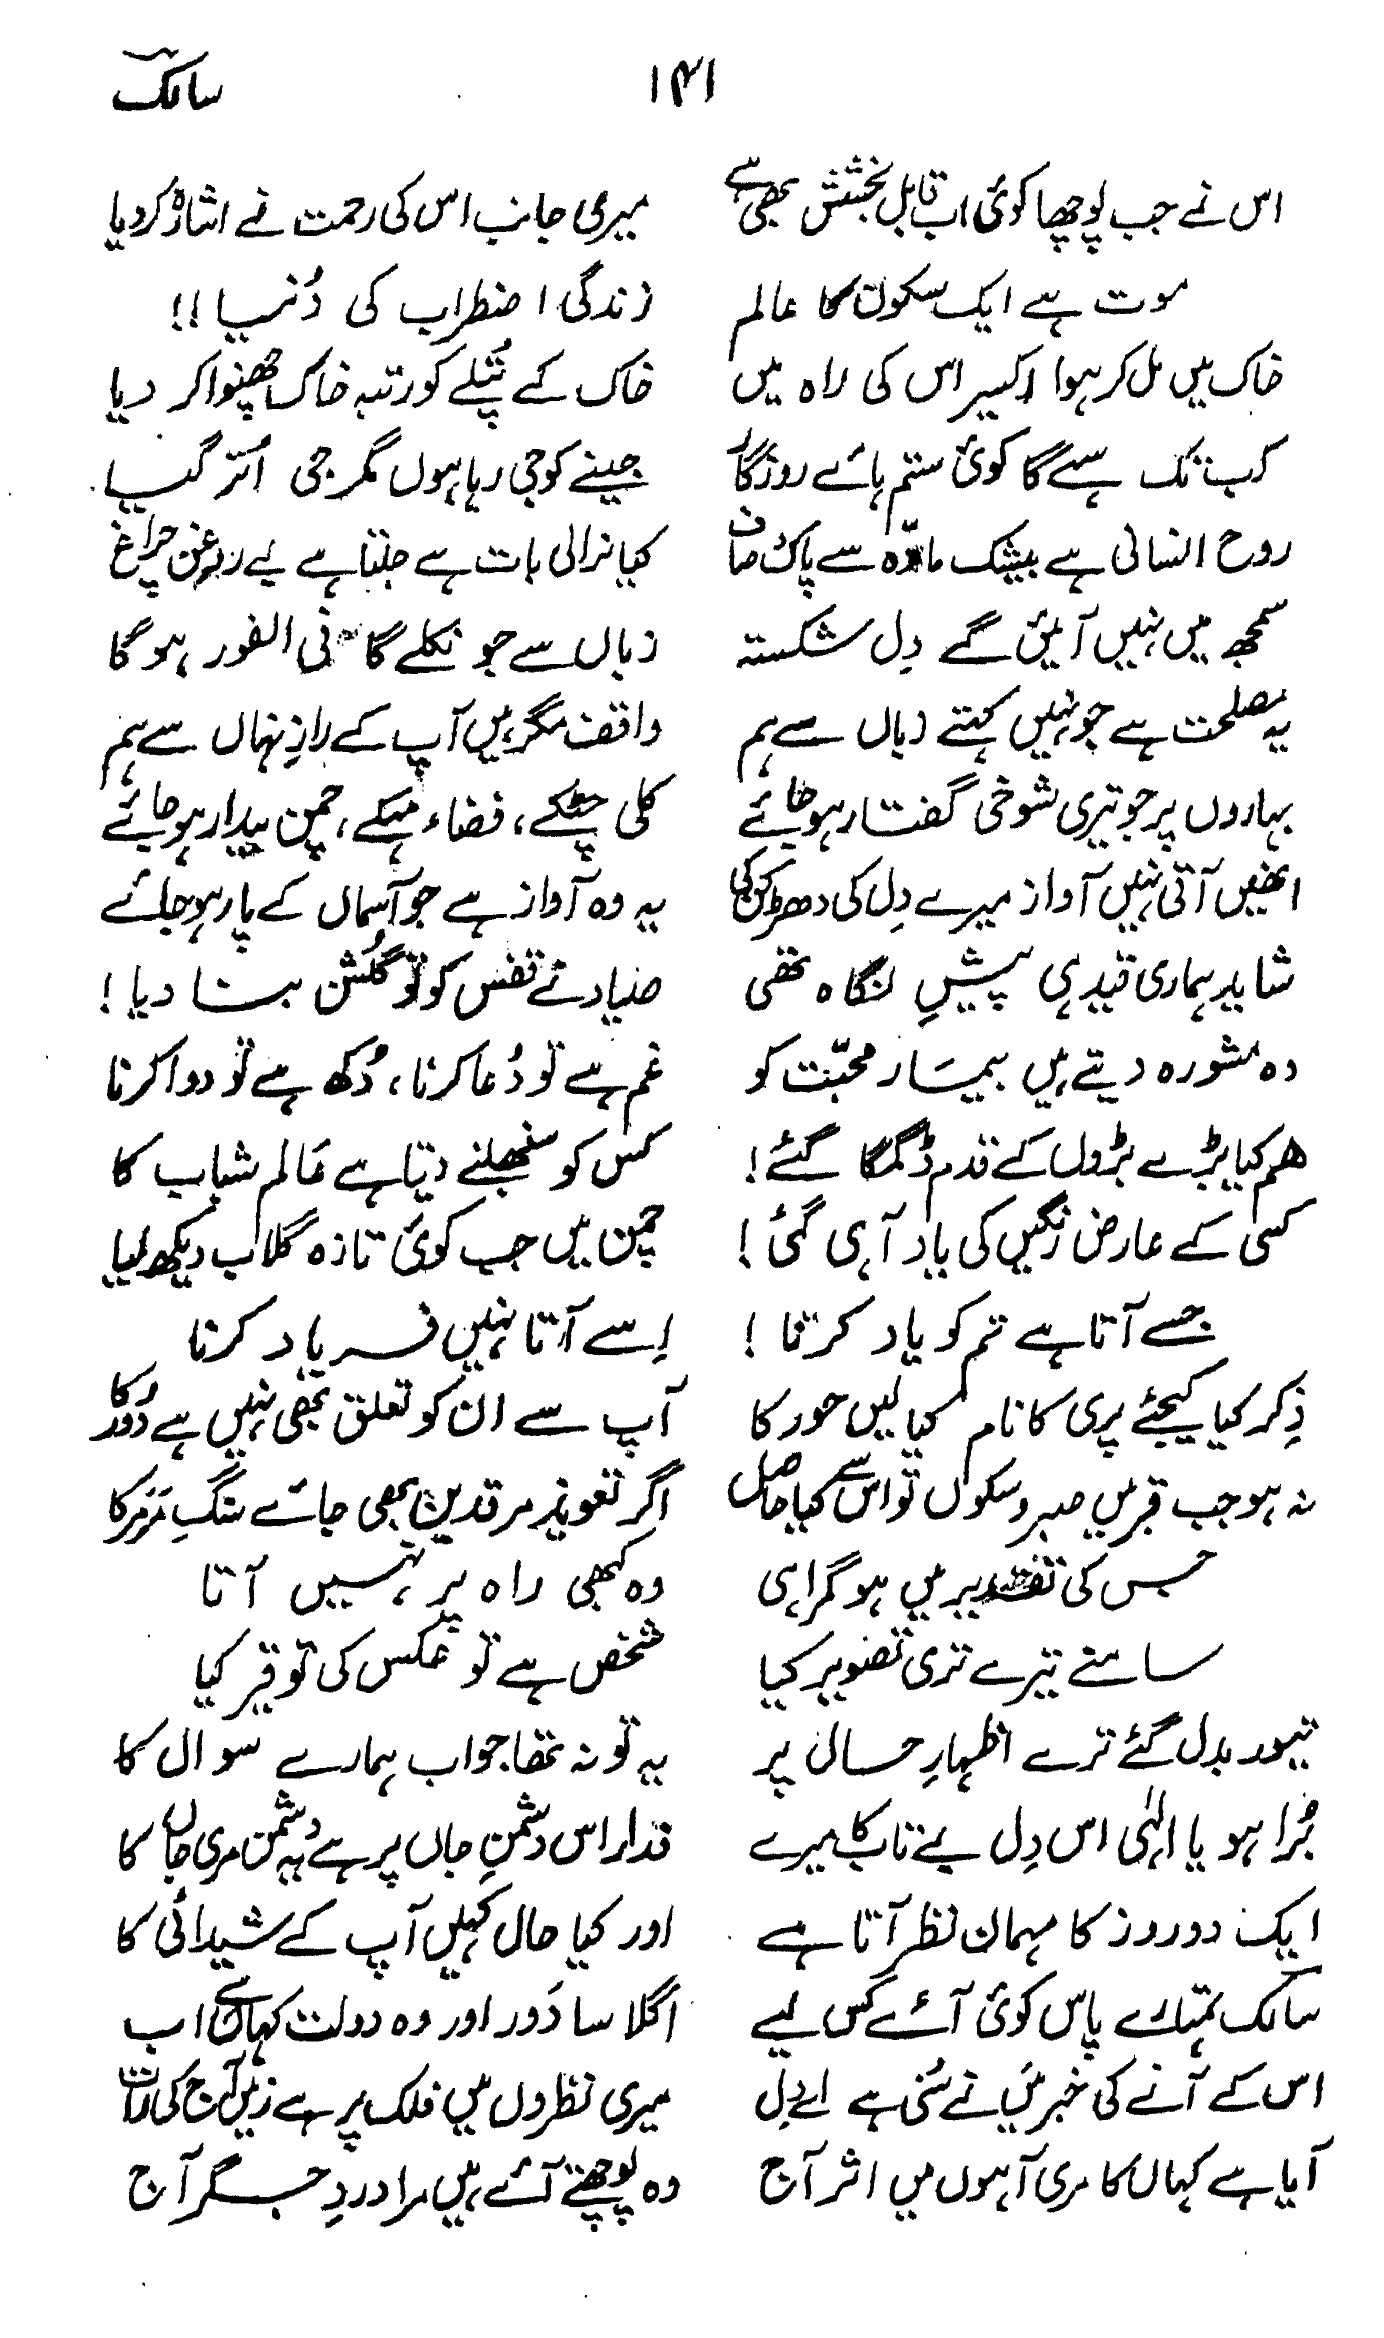 ۱۴۱ سالک
اس نے جب پوچھا کوئی اب قابل بخشش بھی ہے میری جانب اس کی رحمت نے اشارہ کر دیا
موت ہے ایک سکون کا عالم زندگی اضطراب کی دُنیا !!
خاک میں مل کر ہوا اکسیر اس کی راہ میں خاک کے پُتلے کو رتبہ خاک چھنوا کر دیا
کب تک سہے گا کوئی ستم ہائے روزگار جینے کو جی رہا ہوں مگر جی اُتر گیا
روح انسانی ہے بیشک مادّہ سے پاک صاف کیا نرالی بات ہے جلتا ہے بے روغن چراغ
سمجھ میں نہیں آئیں گے دِل شکستہ زباں سے جو نکلے گا فی الفور ہوگا
یہ مصلحت ہے جو نہیں کہتے زباں سے ہم واقف مگر ہیں آپ کے رازِ نہاں سے ہم
بہاروں پر جو تیری شوخی گفتار ہو جائے کلی چٹکے، فضاء مہکے، چمن بیدار ہو جائے
انھیں آتی نہیں آواز میرے دِل کی دھڑکن کی یہ وہ آواز ہے جو آسماں کے پار ہو جائے
شاید ہماری قید ہی پیشِ نگاہ تھی صیاد نے قفس کو تو گلُشن بنا دیا !
وہ مشورہ دیتے ہیں بیمار محبّت کو غم ہے تو دُعا کرنا، دُکھ ہے تو دوا کرنا
ہم کیا بڑے بڑوں کے قدم ڈگمگا گئے ! کس کو سنبھلنے دیتا ہے عَالم شباب کا
کسی کے عارض رنگیں کی یاد آ ہی گئی ! چمن میں جب کوئی تازہ گلاب دیکھ لیا
جسے آتا ہے تم کو یاد کرنا ! اِسے آتا نہیں فریاد کرنا
ذِکر کیا کیجئے پری کا نام کیا لیں حور کا آپ سے ان کو تعلق بھی نہیں ہے دُور کا
نہ ہو جب قبر میں صبر و سکوں تو اس سے کیا حاصل اگر تعویذ مرقد بن بھی جائے سنگِ مَرمَر کا
جس کی تقدیر میں ہو گمراہی وہ کبھی راہ پر نہیں آتا
سامنے تیرے تری تصویر کیا شخص ہے تو عکس کی توقیر کیا
تیور بدل گئے ترے اظہارِ حال پر یہ تو نہ تھا جواب ہمارے سوال کا
بُرا ہو یا الٰہی اس دِل بے تاب کا میرے فدا اس دشمنِ جاں پر ہے یہ دشمن مری جاں کا
ایک دو روز کا مہمان نظر آتا ہے اور کیا حال کہیں آپ کے شیدائی کا
سالک تمہارے پاس کوئی آئے کس لیے اگلا سا دَور اور وہ دولت کہاں ہے اب
اس کے آنے کی خبر میَں نے سُنی ہے اے دِل میری نظروں میں فلک پر ہے زمیں آج کی رات
آیا ہے کہاں کا مری آہوں میں اثر آج وہ پوچھنے آئے ہیں مرا دردِ جگر آج